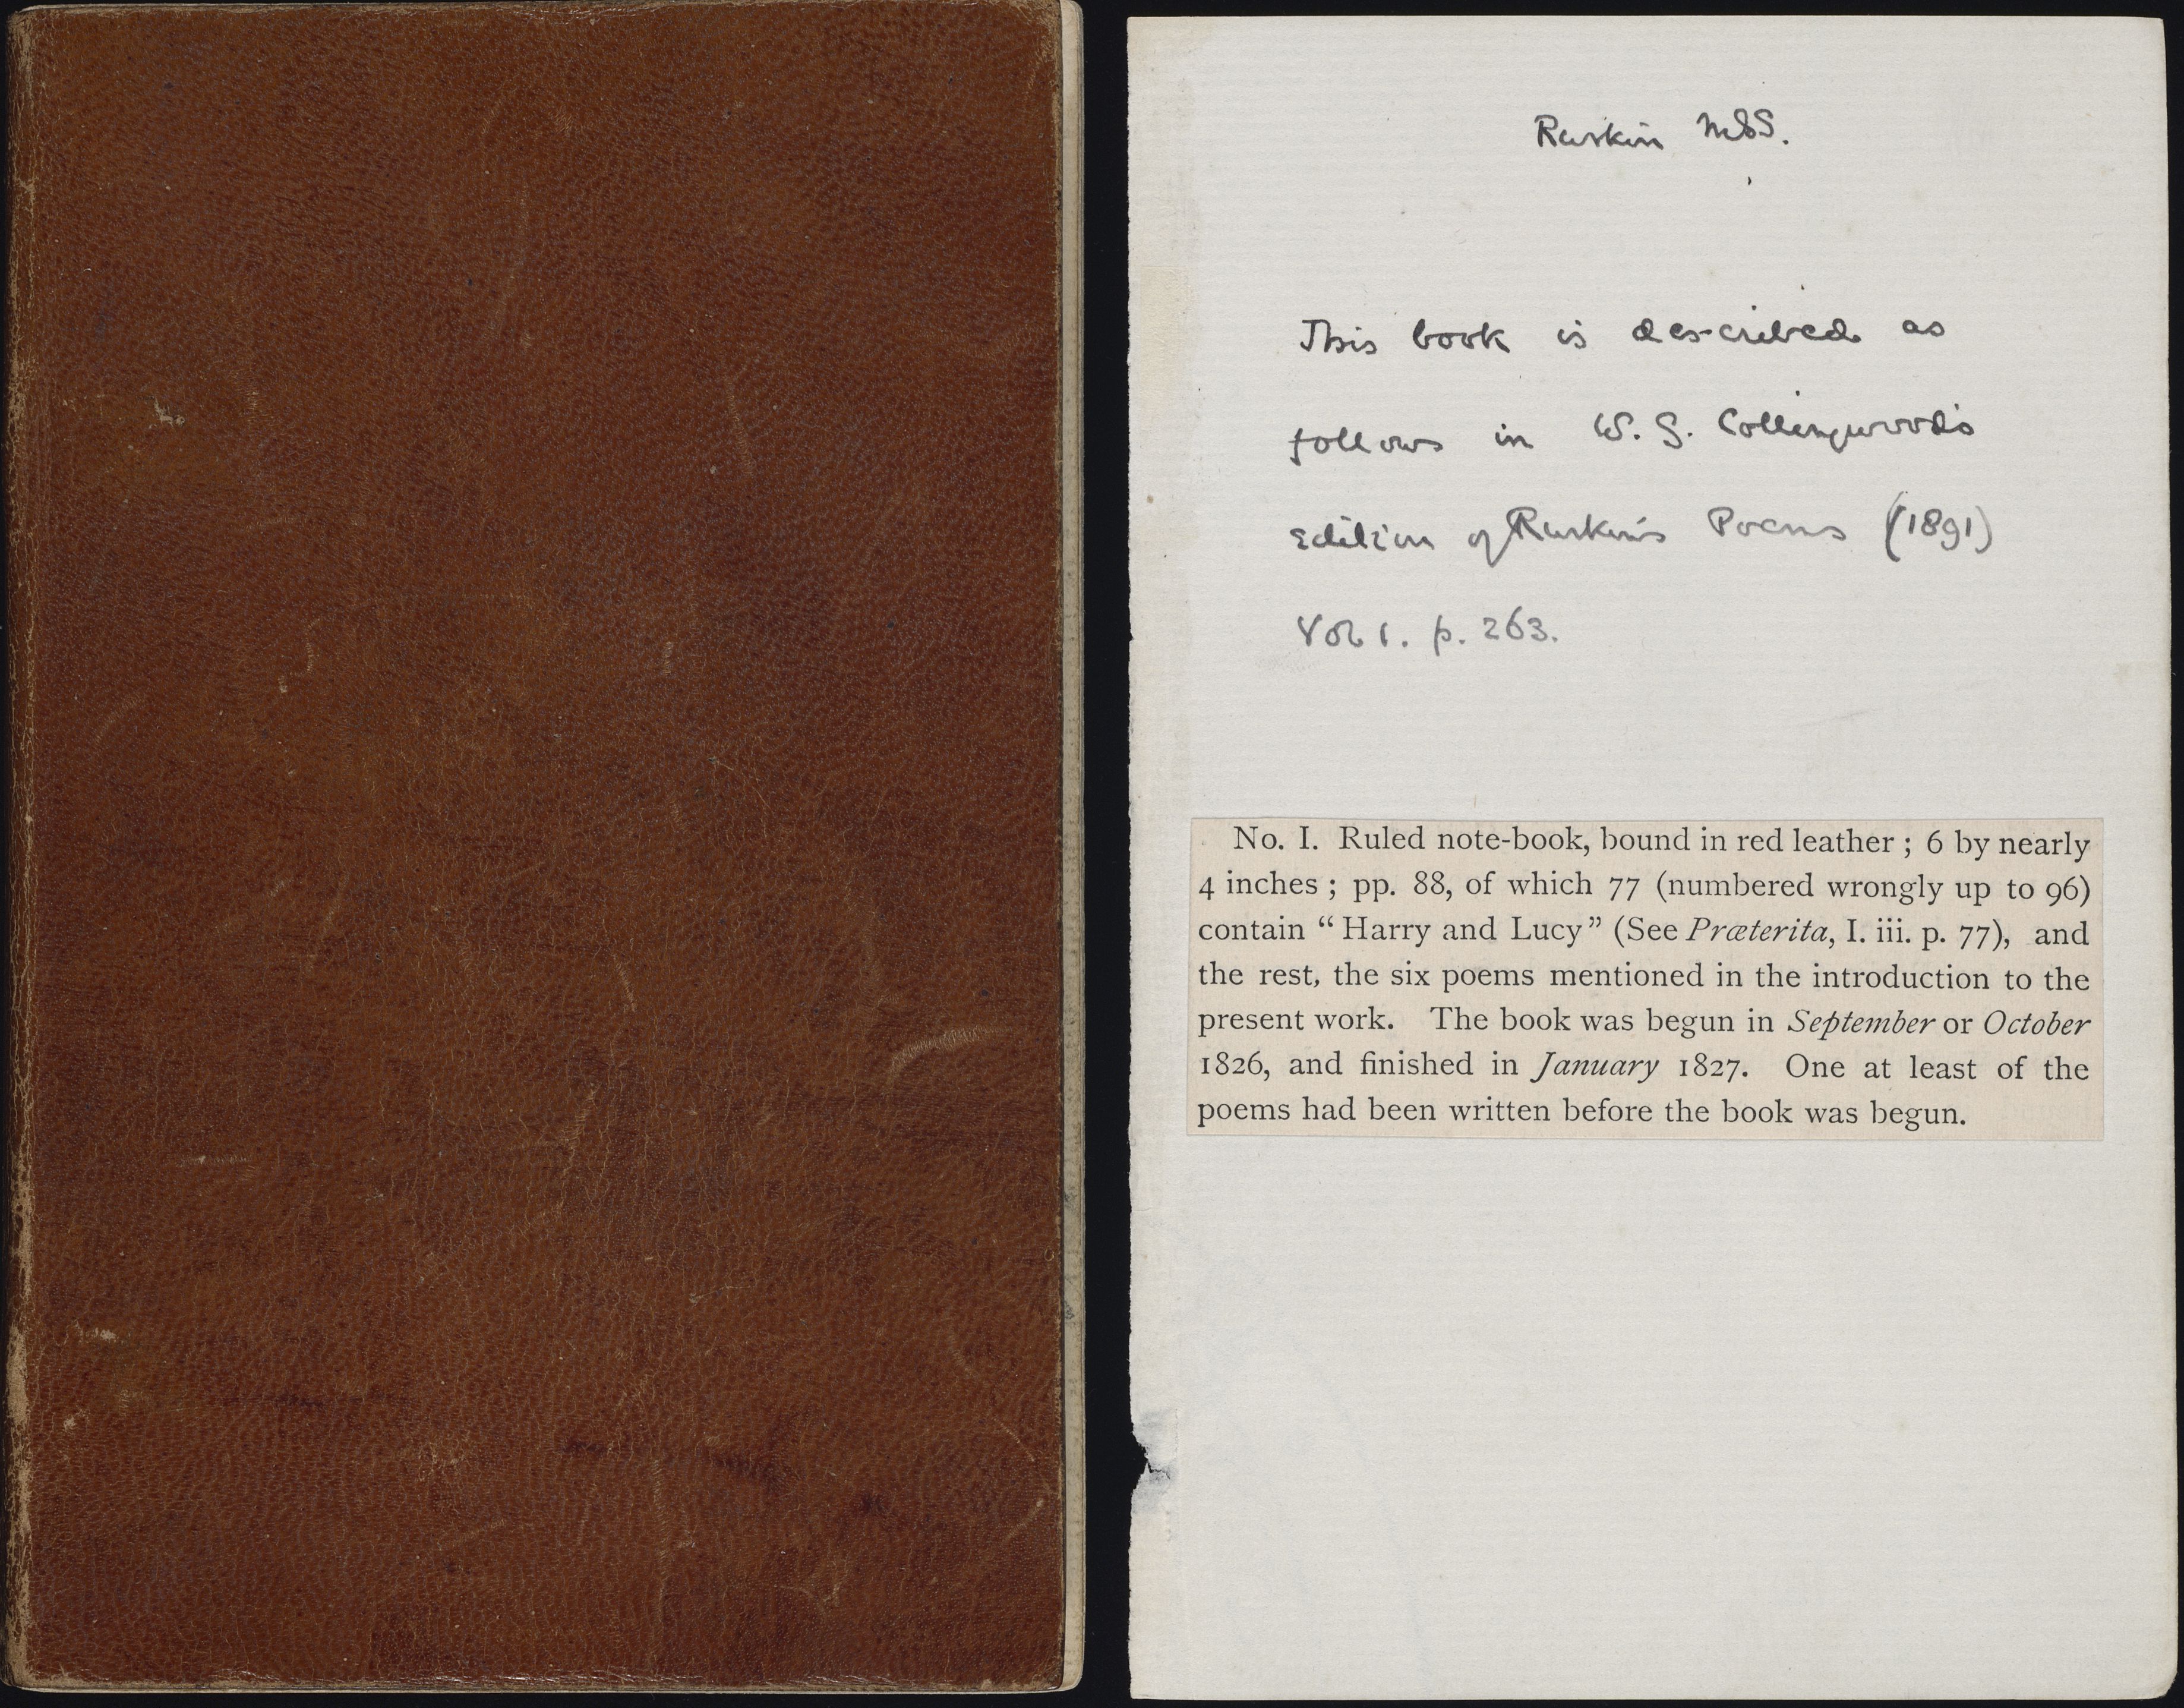 Ruskin MSS.
This book is described as
follows in W. G. Collingwood's
edition of Ruskin's Poems (1891)
Vol 1. p. 263.
No. I. Ruled note-book, bound in red leather ; 6 by nearly
4 inches ; pp. 88, of which 77 (numbered wrongly up to 96)
contain “Harry and Lucy” (See Præterita, I. iii. p. 77), and
the rest, the six poems mentioned in the introduction to the
present work. The book was begun in September or October
1826, and finished in January 1827. One at least of the
poems had been written before the book was begun.